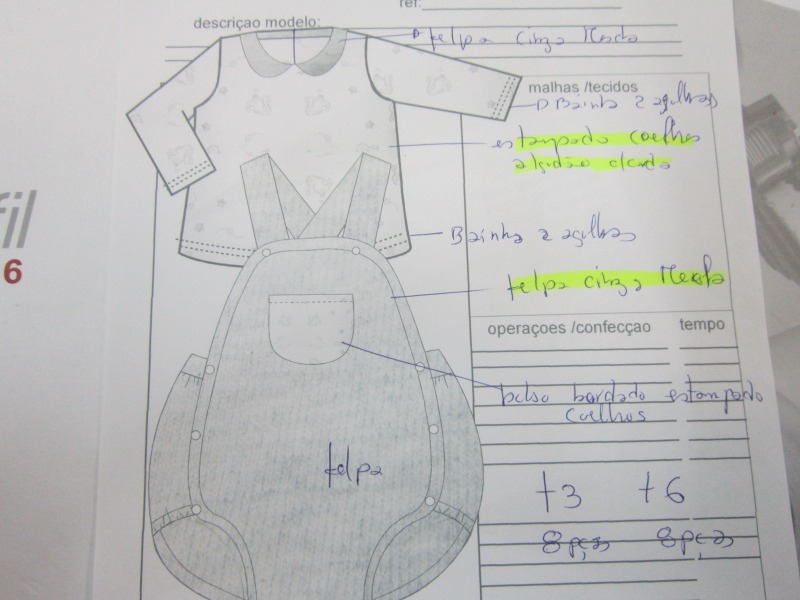 ref:
descriçao modelo:
felpa cinza Mescla
malhas /tecidos
Bainha 2 agulhas
estampado coelhos
algidão
Bainha 2 agulhas
felpa cinza Mescla
fil
6
operaçoes /confecçao tempo
bolso bordado estampado
coelhos
felpa
t3 t6
8 pças 8 pças